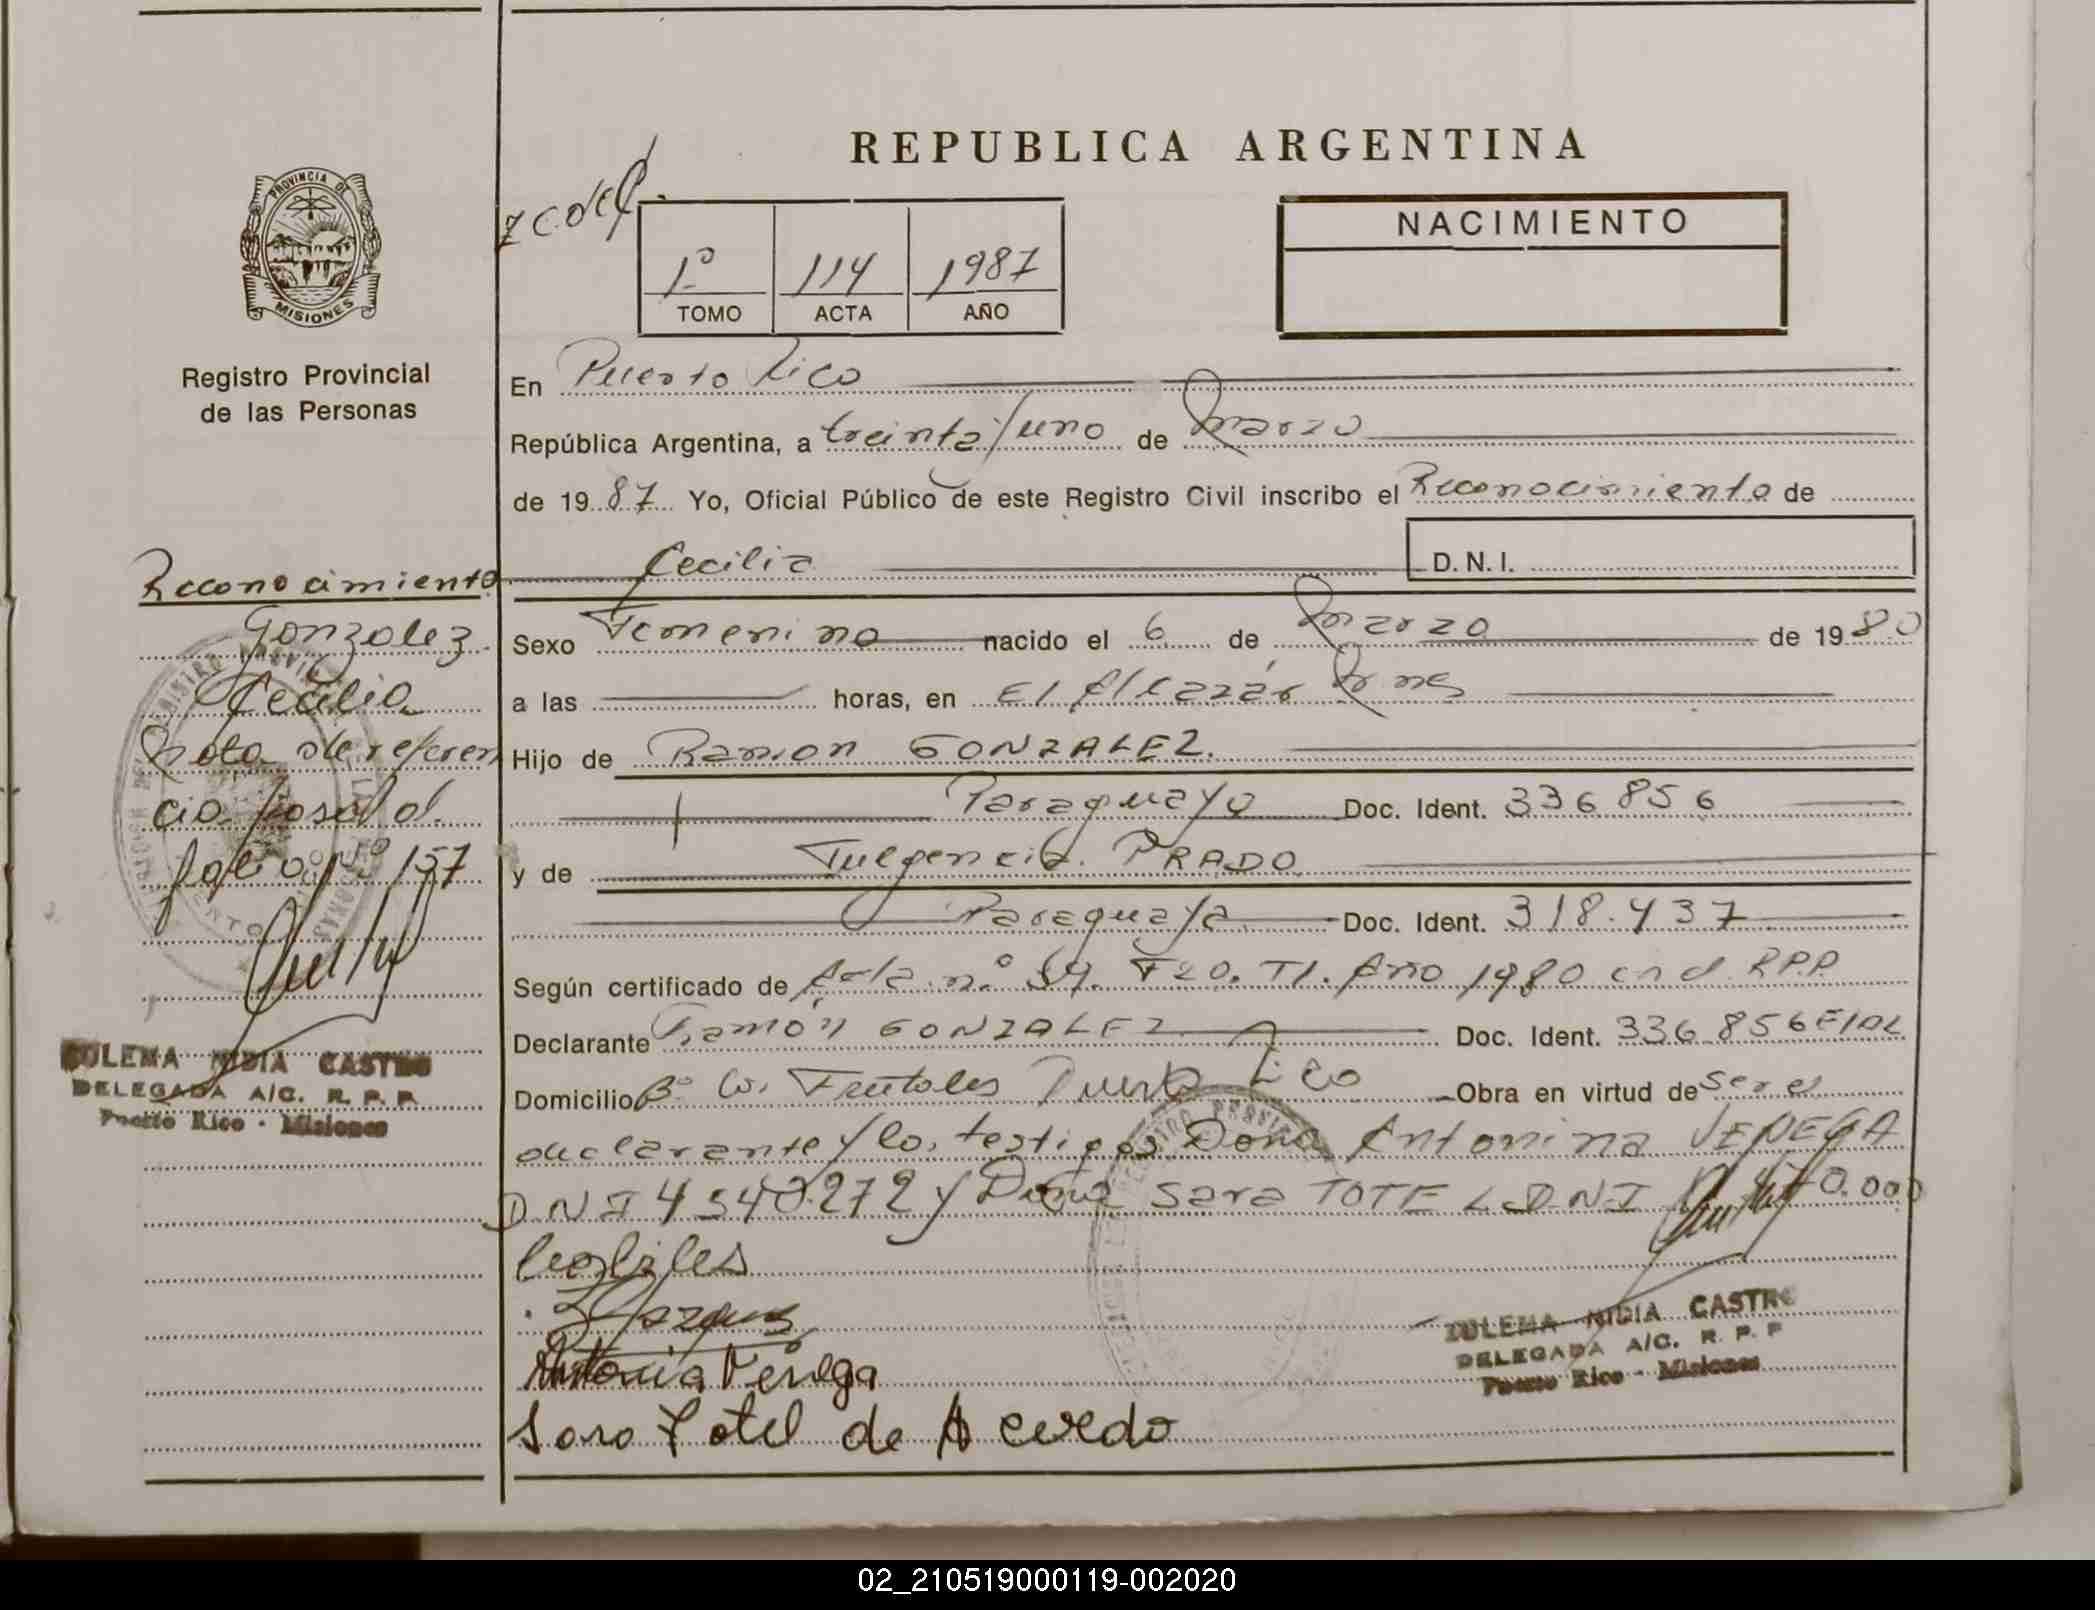 REPUBLICA ARGENTINA
PROVINCIA DE
MISIONES
Registro Provincial
de las Personas
1º 114 1987
TOMO ACTA AÑO
NACIMIENTO
En Puerto Rico
República Argentina, a treinta y uno de Marzo
de 1987 Yo, Oficial Público de este Registro Civil inscribo el Reconocimiento de
Cecilia D. N. I.
Sexo Femenino nacido el 6 de Marzo de 1980
a las horas, en El Alcazár Mnes
Hijo de Ramon GONZALEZ.
Paraguayo Doc. Ident. 336 856
y de Fulgencia PRADO
Paraguaya Doc. Ident. 318.437
Según certificado de Acta nº 39. F20. T1. Año 1980 en el R.P.P.
Declarante Ramón GONZALEZ Doc. Ident. 336 856
Domicilio Bº Puerto Rico Obra en virtud de ser el
declarante y los testigos Doña Antonina
D N I 4540.272 y Doña Sara
ZULEMA NIDIA CASTRO
DELEGADA A/C. R. P. P
Puerto Rico - Misiones
Antonia
de Acevedo
Reconocimiento
Gonzalez
Cecilia
Nota de referen
cia
folio Nº 157
ZULEMA NIDIA CASTRO
DELEGADA A/C. R. P. P.
Puerto Rico - Misiones
02_210519000119-002020